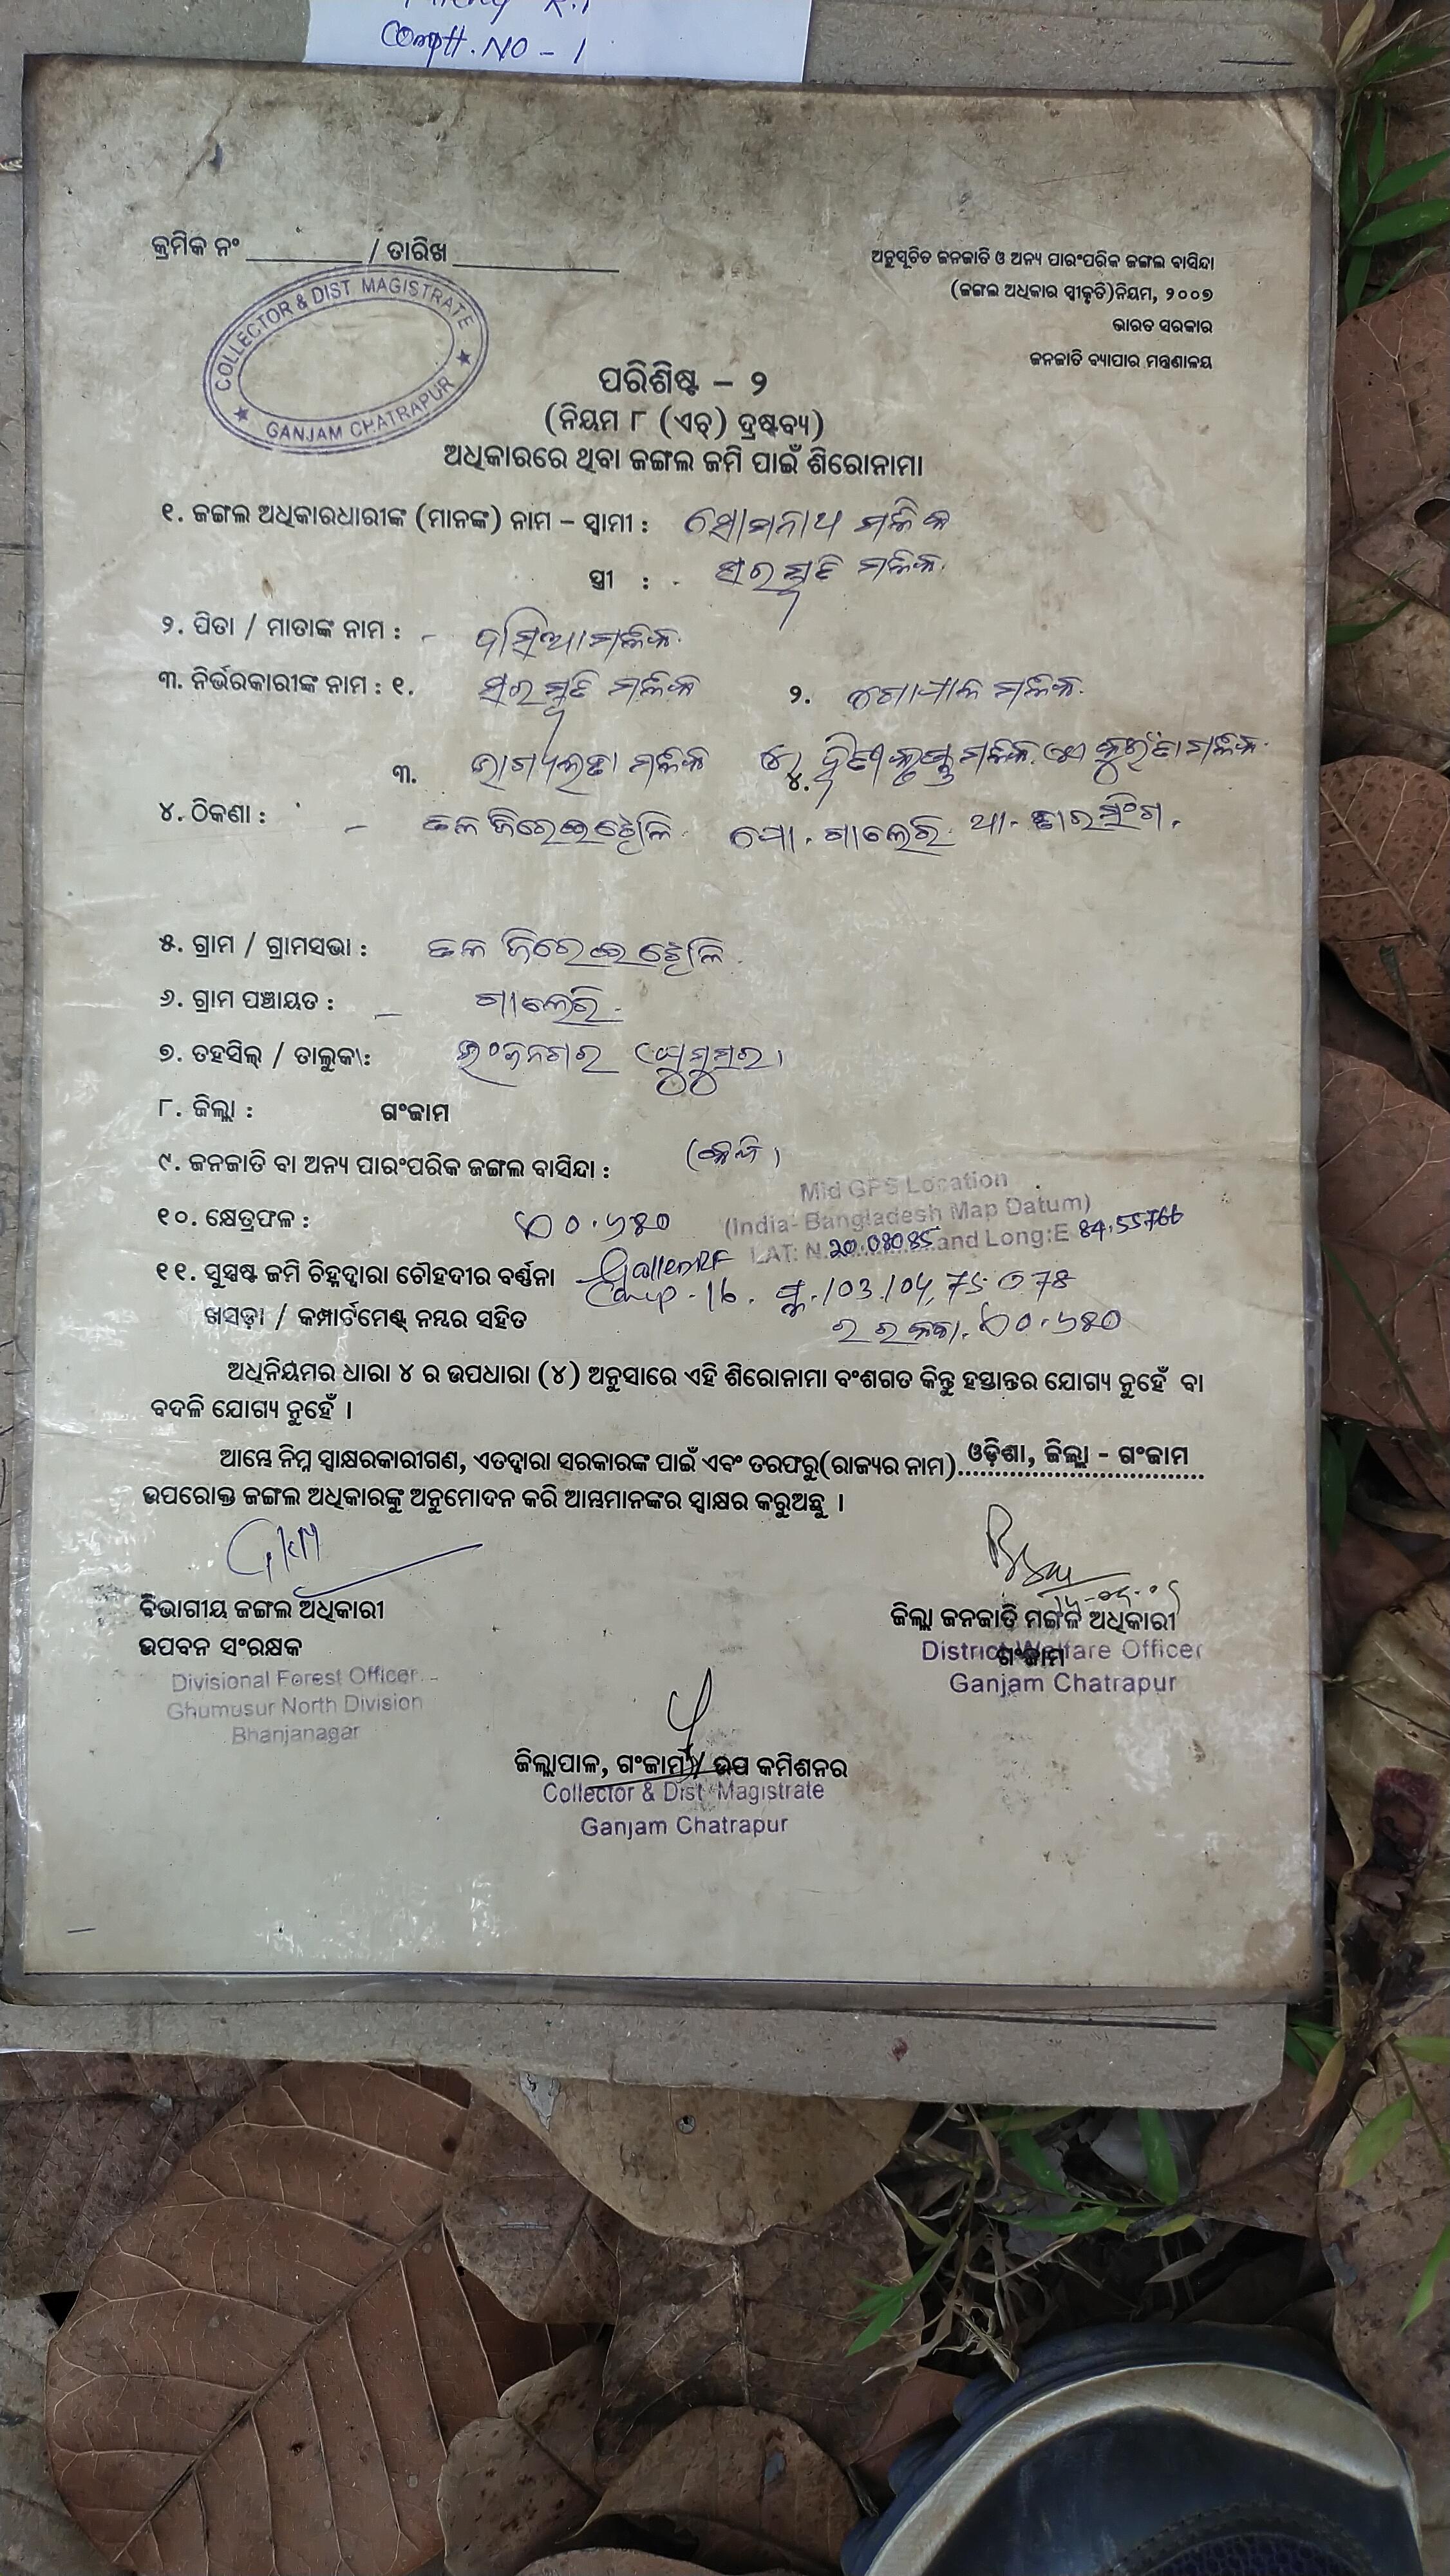 Comptt. NO - 1
କ୍ରମିକ ନଂ ________ / ତାରିଖ ____________
ଅନୁସୂଚିତ ଜନଜାତି ଓ ଅନ୍ୟ ପାରଂପରିକ ଜଙ୍ଗଲ ବାସିନ୍ଦା
(ଜଙ୍ଗଲ ଅଧିକାର ସ୍ୱୀକୃତି)ନିୟମ, ୨୦୦୭
ଭାରତ ସରକାର
ଜନଜାତି ବ୍ୟାପାର ମନ୍ତ୍ରଣାଳୟ
COLLECTOR & DIST. MAGISTRATE
★ GANJAM CHATRAPUR ★
ପରିଶିଷ୍ଟ – ୨
(ନିୟମ ୮ (ଏଚ୍) ଦ୍ରଷ୍ଟବ୍ୟ)
ଅଧିକାରରେ ଥିବା ଜଙ୍ଗଲ ଜମି ପାଇଁ ଶିରୋନାମା
୧. ଜଙ୍ଗଲ ଅଧିକାରଧାରୀଙ୍କ (ମାନଙ୍କ) ନାମ – ସ୍ୱାମୀ : ସୋମନାଥ ମଲ୍ଲିକ
ସ୍ତ୍ରୀ : - ସରସ୍ୱତି ମଲ୍ଲିକ
୨. ପିତା / ମାତାଙ୍କ ନାମ : - ମଲ୍ଲିକ
୩. ନିର୍ଭରକାରୀଙ୍କ ନାମ : ୧. ସରସ୍ୱତି ମଲ୍ଲିକ ୨. ଗୋପାଳ ମଲ୍ଲିକ
୩. ଭାଗ୍ୟଲତା ମଲ୍ଲିକ ୪. ମଲ୍ଲିକ ମଲ୍ଲିକ
୪. ଠିକଣା : - ପୋ. ଗାଲେରି ଥା. ତାରସିଂଗ
୫. ଗ୍ରାମ / ଗ୍ରାମସଭା :
୬. ଗ୍ରାମ ପଞ୍ଚାୟତ : - ଗାଲେରି
୭. ତହସିଲ୍ / ତାଲୁକା: ଭଂଜନଗର
୮. ଜିଲ୍ଲା : ଗଂଜାମ
୯. ଜନଜାତି ବା ଅନ୍ୟ ପାରଂପରିକ ଜଙ୍ଗଲ ବାସିନ୍ଦା :
Mid GPS Location
(India- Bangladesh Map Datum)
୧୦. କ୍ଷେତ୍ରଫଳ :
LAT: N. 20.08085 and Long:E 84.55766
୧୧. ସୁସ୍ପଷ୍ଟ ଜମି ଚିହ୍ନଦ୍ୱାରା ଚୌହଦୀର ବର୍ଣ୍ଣନା Galleri RF
ଖସଡ଼ା / କମ୍ପାର୍ଟମେଣ୍ଟ୍ ନମ୍ବର ସହିତ Comp - 16.
ଅଧିନିୟମର ଧାରା ୪ ର ଉପଧାରା (୪) ଅନୁସାରେ ଏହି ଶିରୋନାମା ବଂଶଗତ କିନ୍ତୁ ହସ୍ତାନ୍ତର ଯୋଗ୍ୟ ନୁହେଁ ବା
ବଦଳି ଯୋଗ୍ୟ ନୁହେଁ ।
ଆମ୍ଭେ ନିମ୍ନ ସ୍ୱାକ୍ଷରକାରୀଗଣ, ଏତଦ୍ୱାରା ସରକାରଙ୍କ ପାଇଁ ଏବଂ ତରଫରୁ(ରାଜ୍ୟର ନାମ) ଓଡ଼ିଶା, ଜିଲ୍ଲା - ଗଂଜାମ
ଉପରୋକ୍ତ ଜଙ୍ଗଲ ଅଧିକାରଙ୍କୁ ଅନୁମୋଦନ କରି ଆମ୍ଭମାନଙ୍କର ସ୍ୱାକ୍ଷର କରୁଅଛୁ ।
ବିଭାଗୀୟ ଜଙ୍ଗଲ ଅଧିକାରୀ
ଉପବନ ସଂରକ୍ଷକ
Divisional Forest Officer
Ghumusur North Division
Bhanjanagar
ଜିଲ୍ଲା ଜନଜାତି ମଙ୍ଗଳ ଅଧିକାରୀ
ଗଂଜାମ
District Welfare Officer
Ganjam Chatrapur
ଜିଲ୍ଲାପାଳ, ଗଂଜାମ / ଉପ କମିଶନର
Collector & Dist Magistrate
Ganjam Chatrapur